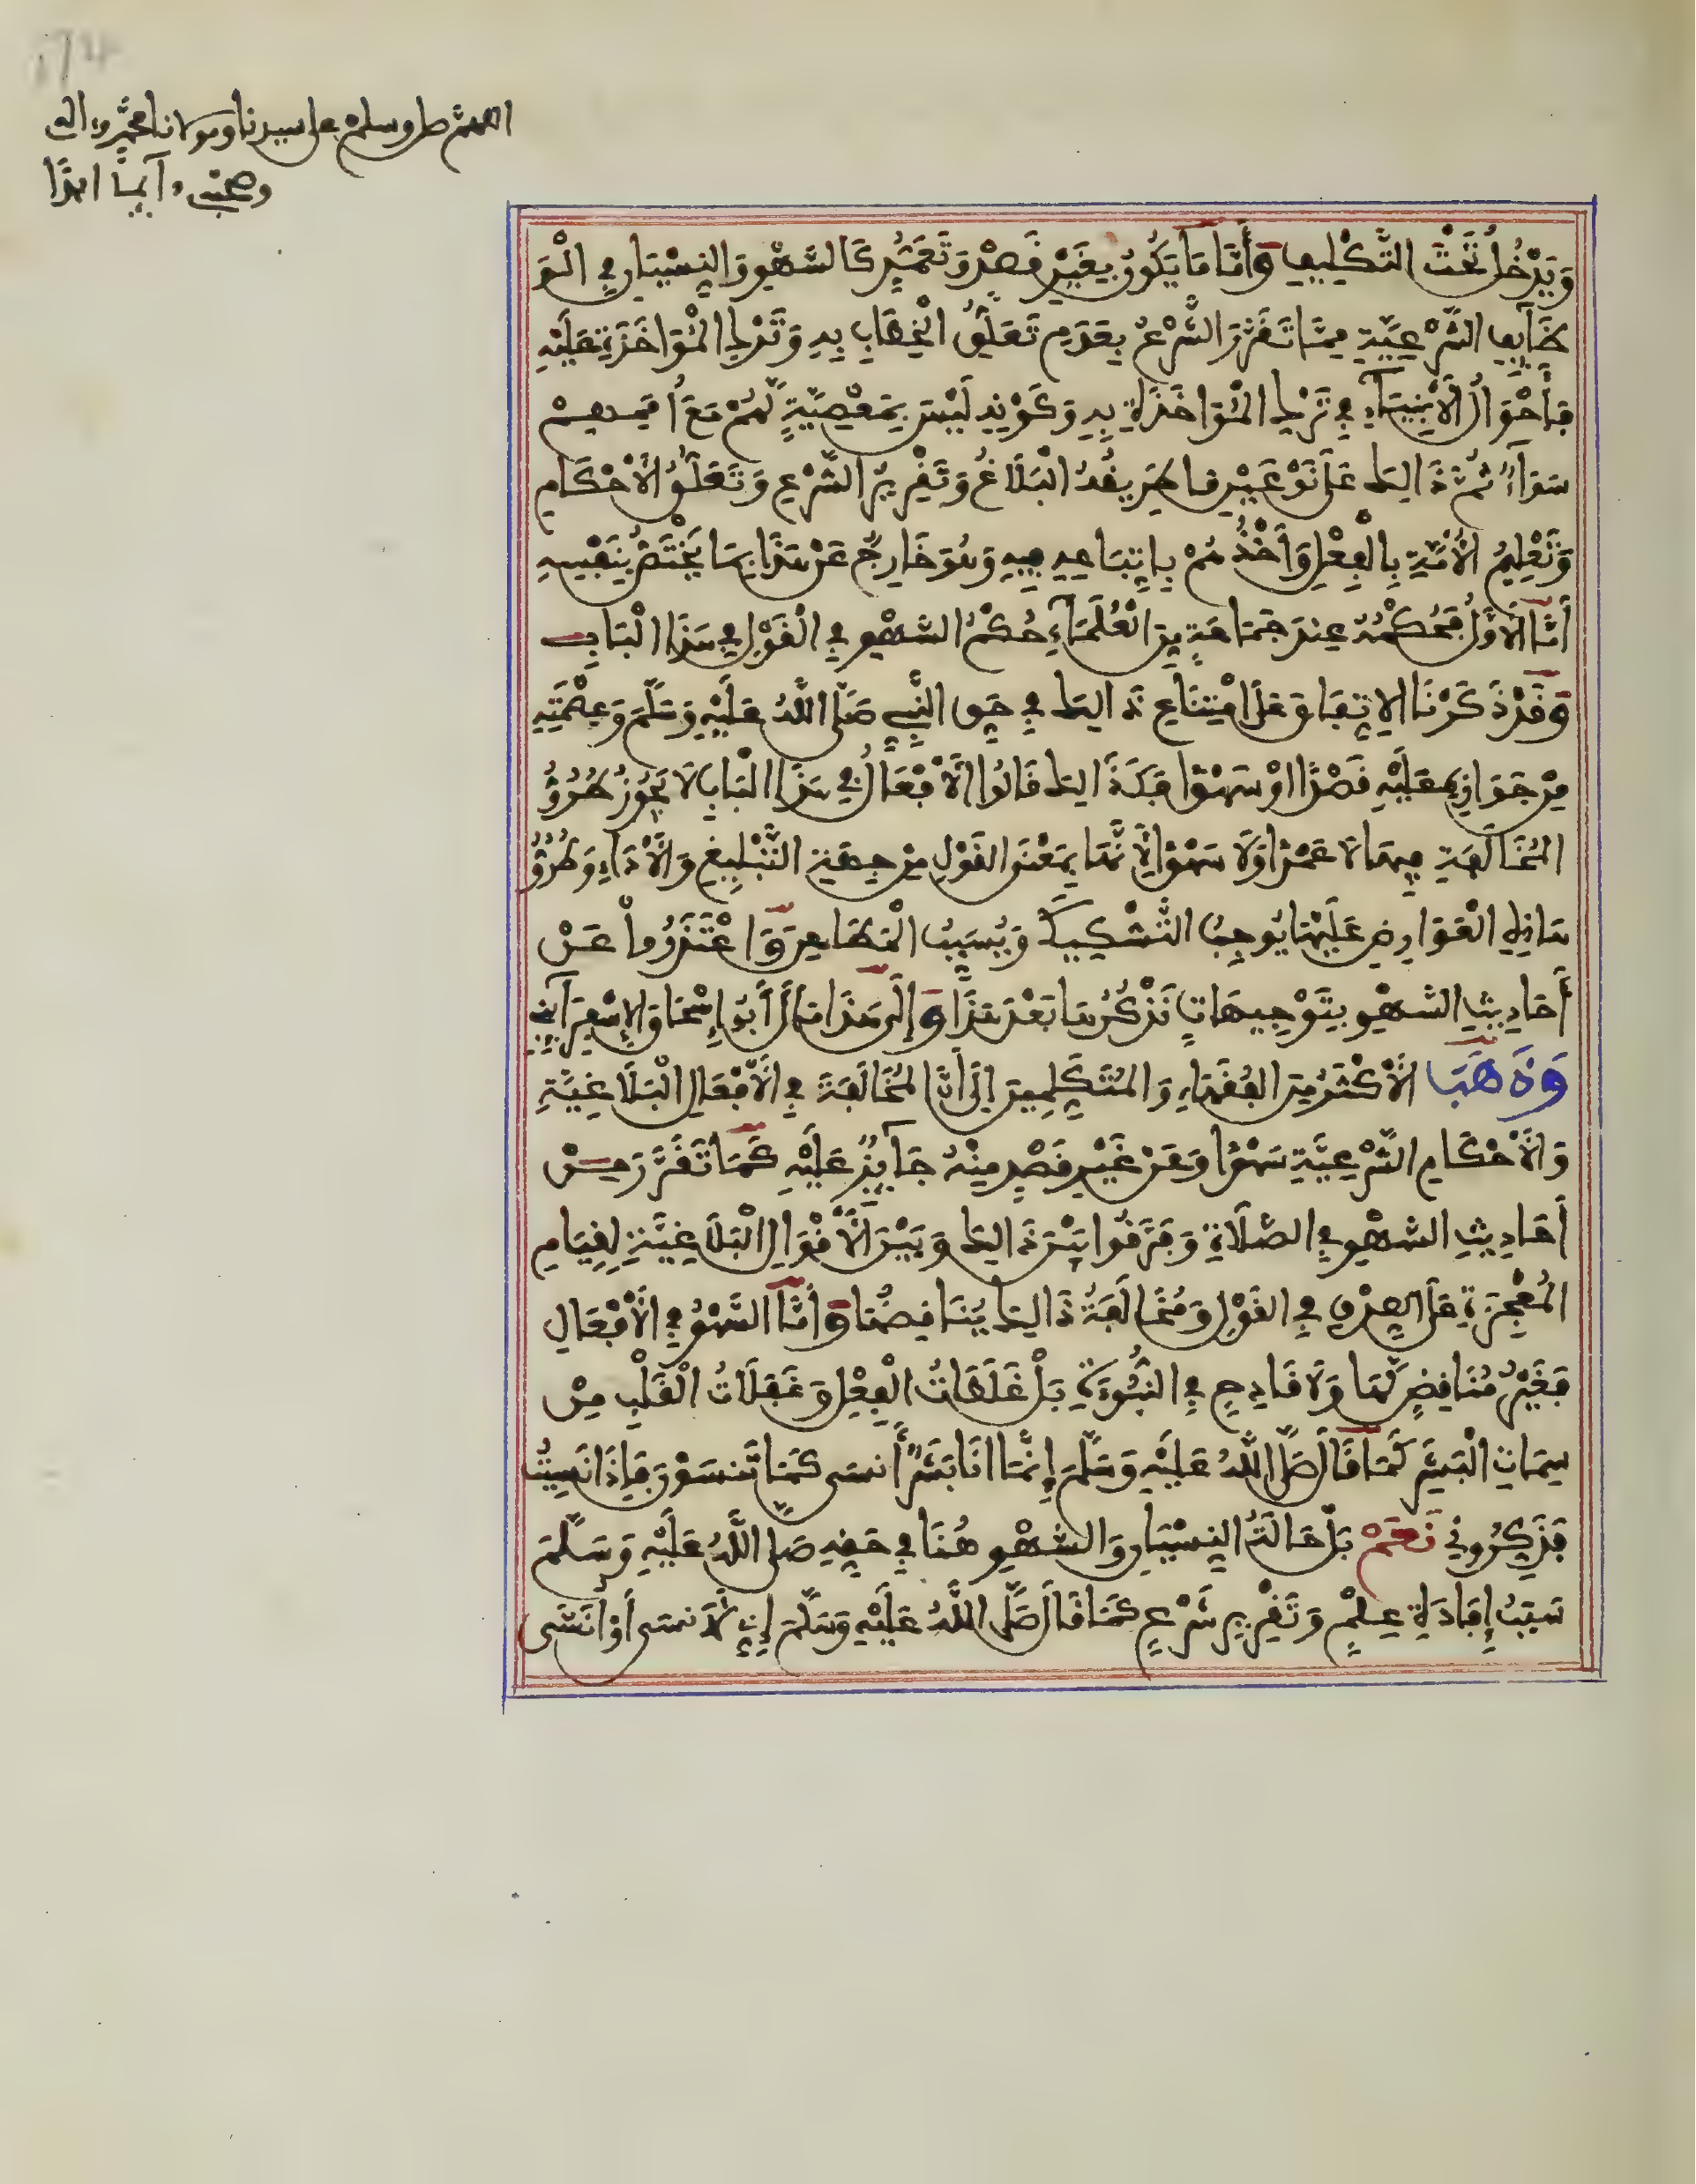 اللهم صل وسلم على سيدنا ومولانا محمد وءاله
وصحبه دآيما ابدا
وَيَدْخُلُ تَحْتَ التَّكْلِيفِ وَأَمَّا مَا يَكُونُ بِغَيْرِ قَصْدٍ وَتَعَمُّدٍ كَالسَّهْوِ وَالنِّسْيَانِ فِي الْوَ
ظَآئِفِ الشَّرْعِيَّةِ مِمَّا تَقَرَّرَ الشَّرْعُ بِعَدَمِ تَعَلُّقِ الْخِطَابِ بِهِ وَتَرْكِ الْمُؤَاخَذَةِ عَلَيْهِ
فَأَحْوَالُ الْأَنْبِيَآءِ فِي تَرْكِ الْمُؤَاخَذَةِ بِهِ وَكَوْنِهِ لَيْسَ بِمَعْصِيَةٍ لَّهُمْ مَعَ أُمَمِهِمْ
سَوَآءٌ ثُمَّ ذَالِكَ عَلَى نَوْعَيْنِ مَا طَرِيقُهُ الْبَلَاغُ وَتَقْرِيرُ الشَّرْعِ وَتَعَلُّقُ الْأَحْكَامِ
وَتَعْلِيمُ الْأُمَّةِ بِالْفِعْلِ وَأَخْذُهُمْ بِاتِّبَاعِهِ فِيهِ وَهُوَ خَارِجٌ عَنْ هَذَا مِمَّا يَخْتَصُّ بِنَفْسِهِ
أَمَّا الْأَوَّلُ فَحُكْمُهُ عِنْدَ جَمَاعَةٍ مِنَ الْعُلَمَآءِ حُكْمُ السَّهْوِ فِي الْقَوْلِ فِي هَذَا الْبَابِ
وَقَدْ ذَكَرْنَا الِاتِّفَاقَ عَلَى امْتِنَاعِ ذَالِكَ فِي حَقِّ النَّبِيِّ صَلَّى اللَّهُ عَلَيْهِ وَسَلَّمَ وَعِصْمَتِهِ
مِنْ جَوَازِهِ عَلَيْهِ قَصْدًا اوْ سَهْوًا فَكَذَالِكَ قَالُوا الْأَفْعَالُ فِي هَذَا الْبَابِ لَا يَجُوزُ طُرُوُّ
الْمُخَالَفَةِ فِيهَا لَا عَمْدًا وَلَا سَهْوًا لِأَنَّهَا بِمَعْنَى الْقَوْلِ مِنْ جِهَةِ التَّبْلِيغِ وَالْأَدَاءِ وَطُرُوُّ
هَاذِهِ الْعَوَارِضِ عَلَيْهَا يُوجِبُ التَّشْكِيكَ وَيُسَبِّبُ الْمَطَاعِنَ وَاعْتَذَرُوا عَنْ
أَحَادِيثِ السَّهْوِ بِتَوْجِيهَاتٍ نَذْكُرُهَا بَعْدَ هَذَا وَإِلَى هَذَا مَالَ أَبُو إِسْحَاقَ الإِسْفِرَآئِنِي
وَذَهَبَ الْأَكْثَرُ مِنَ الْفُقَهَاءِ وَالْمُتَكَلِّمِينَ إِلَى أَنَّ الْمُخَالَفَةَ فِي الْأَفْعَالِ الْبَلَاغِيَّةِ
وَالْأَحْكَامِ الشَّرْعِيَّةِ سَهْوًا وَعَنْ غَيْرِ قَصْدٍ مِنْهُ جَآئِزٌ عَلَيْهِ كَمَا تَقَرَّرَ مِنْ
أَحَادِيثِ السَّهْوِ فِي الصَّلَاةِ وَفَرَّقُوا بَيْنَ ذَالِكَ وَبَيْنَ الْأَقْوَالِ الْبَلَاغِيَّةِ لِقِيَامِ
الْمُعْجِزَةِ عَلَى الصِّدْقِ فِي الْقَوْلِ وَمُخَالَفَةُ ذَالِكَ يُنَاقِضُهَا وَأَمَّا السَّهْوُ فِي الْأَفْعَالِ
فَغَيْرُ مُنَاقِضٍ لَهَا وَلَا قَادِحٍ فِي النُّبُوءَةِ بَلْ غَلَطَاتُ الْفِعْلِ وَغَفَلَاتُ الْقَلْبِ مِنْ
سِمَاتِ الْبَشَرِ كَمَا قَالَ صَلَّى اللَّهُ عَلَيْهِ وَسَلَّمَ إِنَّمَا انَا بَشَرٌ أَنسى كَمَا تَنسَوْنَ فَإِذَا نَسِيتُ
فَذَكِّرُونِي نَعَمْ بَلْ حَالَةُ النِّسْيَانِ وَالسَّهْوِ هُنَا فِي حَقِّهِ صَلَّى اللَّهُ عَلَيْهِ وَسَلَّمَ
سَبَبُ إِفَادَةِ عِلْمٍ وَتَقْرِيرِ شَرْعٍ كَمَا قَالَ صَلَّى اللَّهُ عَلَيْهِ وَسَلَّمَ إِنِّي لَأَنسى أَوْ انَسَّى